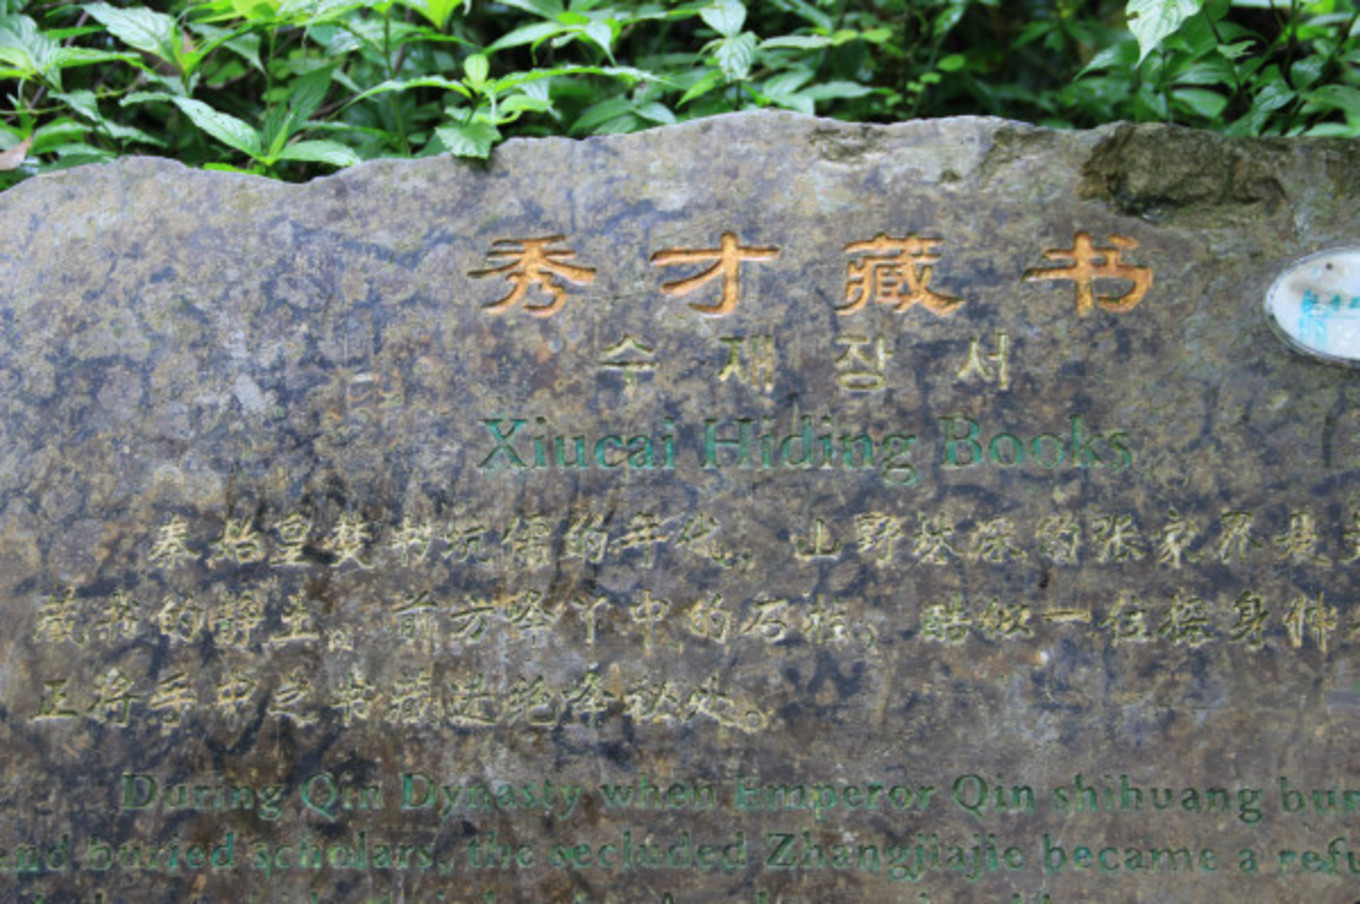 秀才藏书
수재장서
Xiucai Hiding Books
秦始皇焚书坑儒的年代，山野披深的张家界是
藏书的静土。前方峰丫中的石柱，酷似一位探身伸
正将手中之书藏进绝峰秘处。
During Qin Dynasty when Emperor Qin shihuang bur
and buried scholars, the secluded Zhangjiajie became a refu